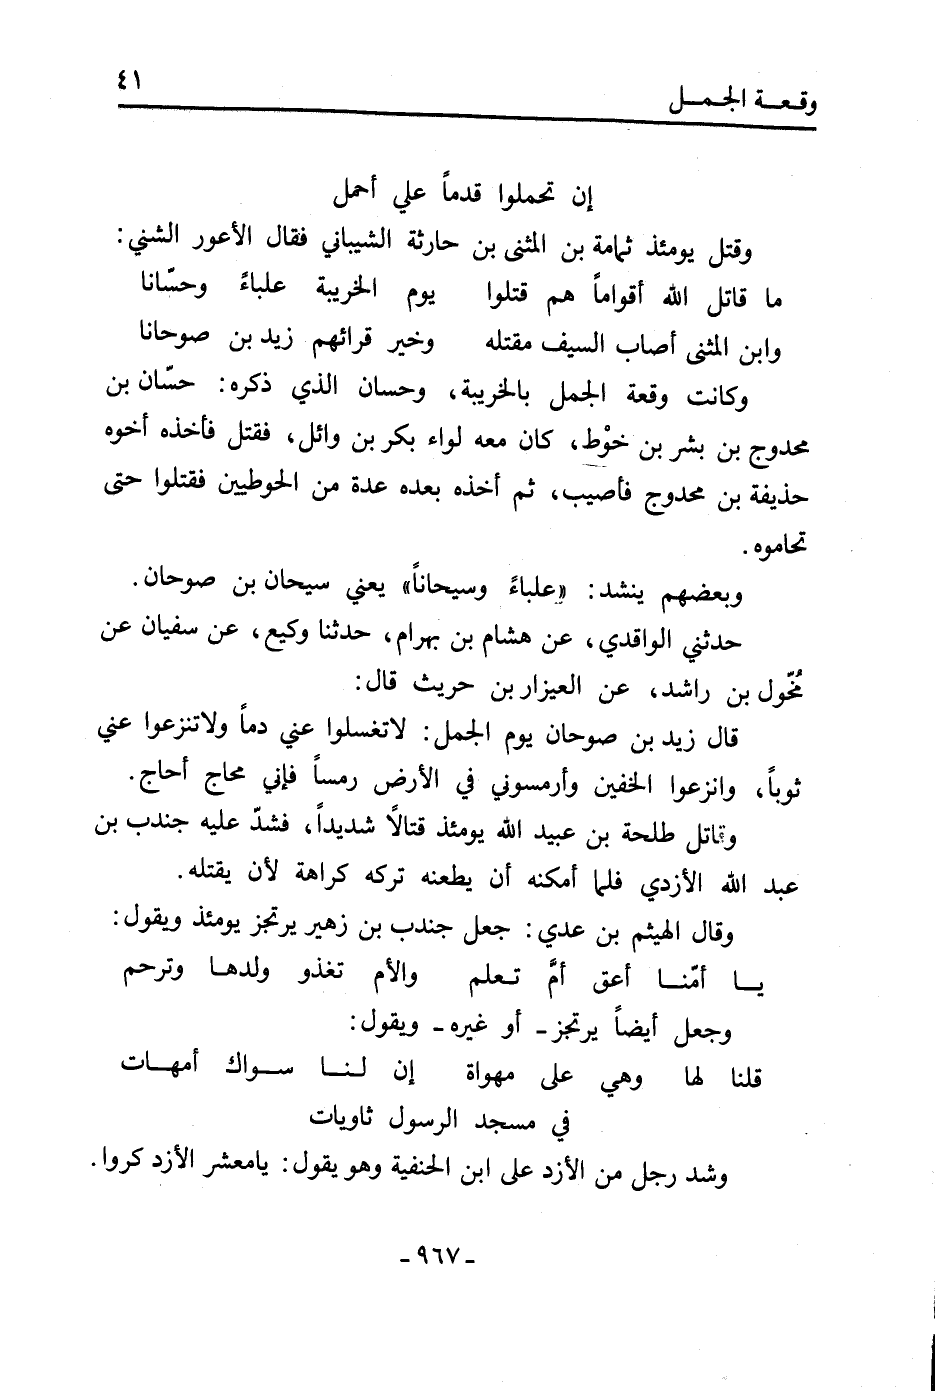 وقعة الجمل ٤١
إن تحملوا قدماً علي أحمل
وقتل يومئذ ثمامة بن المثنى بن حارثة الشيباني فقال الأعور الشني:
ما قاتل الله أقواماً هم قتلوا يوم الخريبة علباءً وحسّانا
وابن المثنى أصاب السيف مقتله وخير قرائهم زيد بن صوحانا
وكانت وقعة الجمل بالخريبة، وحسان الذي ذكره: حسّان بن
محدوج بن بشر بن خوْط، كان معه لواء بكر بن وائل، فقتل فأخذه أخوه
حذيفة بن محدوج فأصيب، ثم أخذه بعده عدة من الحوطيين فقتلوا حتى
تحاموه.
وبعضهم ينشد: «علباءً وسيحاناً» يعني سيحان بن صوحان.
حدثني الواقدي، عن هشام بن بهرام، حدثنا وكيع، عن سفيان عن
مُخّول بن راشد، عن العيزار بن حريث قال:
قال زيد بن صوحان يوم الجمل: لاتغسلوا عني دماً ولاتنزعوا عني
ثوباً، وانزعوا الخفين وأرمسوني في الأرض رمساً فإني محاج أحاج.
وقاتل طلحة بن عبيد الله يومئذ قتالاً شديداً، فشدّ عليه جندب بن
عبد الله الأزدي فلما أمكنه أن يطعنه تركه كراهة لأن يقتله.
وقال الهيثم بن عدي: جعل جندب بن زهير يرتجز يومئذ ويقول:
يا أمّنا أعق أمَّ تعلم والأم تغذو ولدها وترحم
وجعل أيضاً يرتجز ـ أو غيره ـ ويقول:
قلنا لها وهي على مهواة إن لنا سواك أمهات
في مسجد الرسول ثاويات
وشد رجل من الأزد على ابن الحنفية وهو يقول: يامعشر الأزد كروا.
- ٩٦٧ -